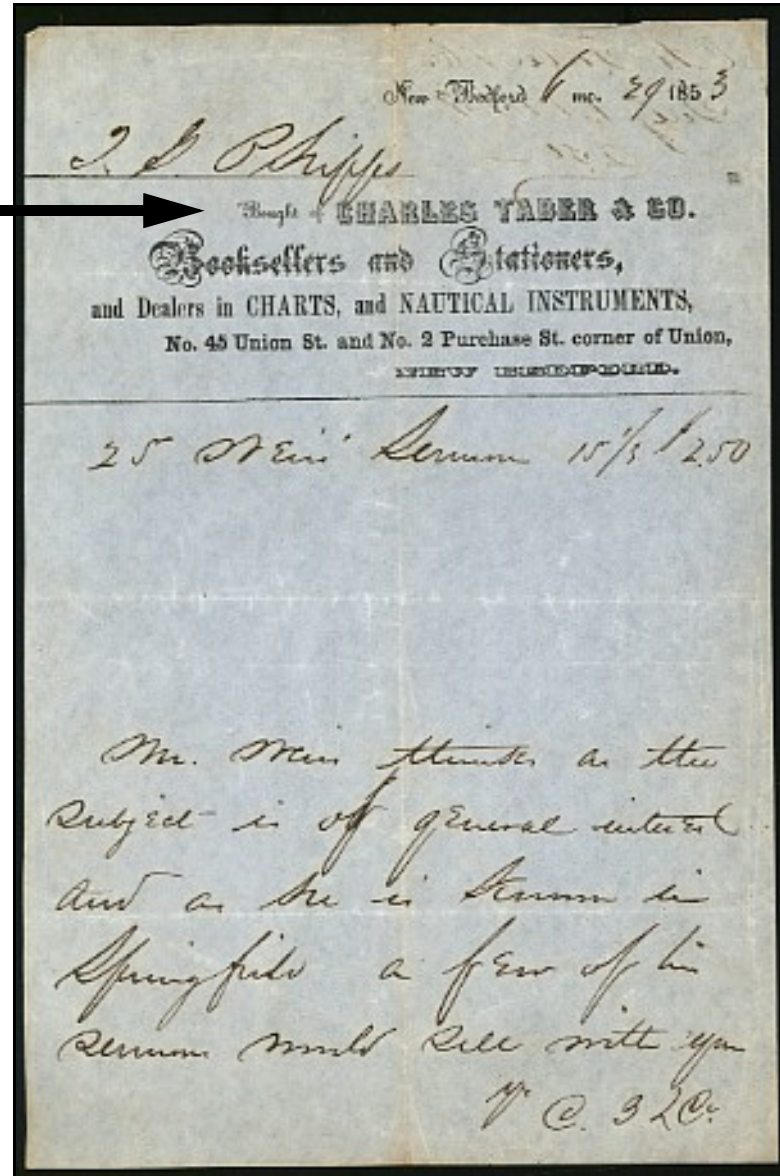 New-Bedford 6 mo. 29 1853
Phipps
Bought of CHARLES TABER & CO.
Booksellers and Stationers,
and Dealers in CHARTS, and NAUTICAL INSTRUMENTS,
No. 45 Union St. and No. 2 Purchase St. corner of Union,
NEW BEDFORD.
25 Weiss' Sermon 2.50
Mr. Weiss thinks as the
subject is of general interest
and as he is known in
Springfield a few of his
sermons would sell with you